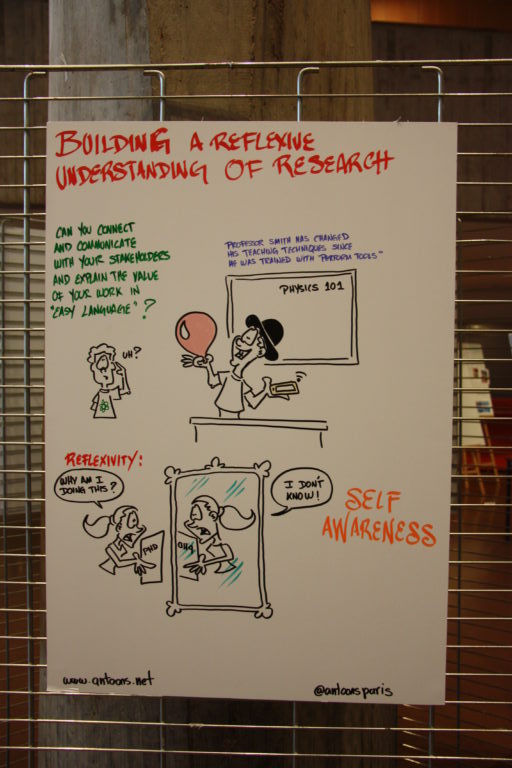 BUILDING A REFLEXIVE
UNDERSTANDING OF RESEARCH
CAN YOU CONNECT
AND COMMUNICATE
WITH YOUR STAKEHOLDERS
AND EXPLAIN THE VALUE
OF YOUR WORK IN
"EASY LANGUAGE"?
"PROFESSOR SMITH HAS CHANGED
HIS TEACHING TECHNIQUES SINCE
HE WAS TRAINED WITH PERFORM TOOLS"
PHYSICS 101
UH?
REFLEXIVITY:
WHY AM I
DOING THIS?
PHD
PHD
I DON'T
KNOW!
SELF
AWARENESS
www.antoons.net
@antoonsparis